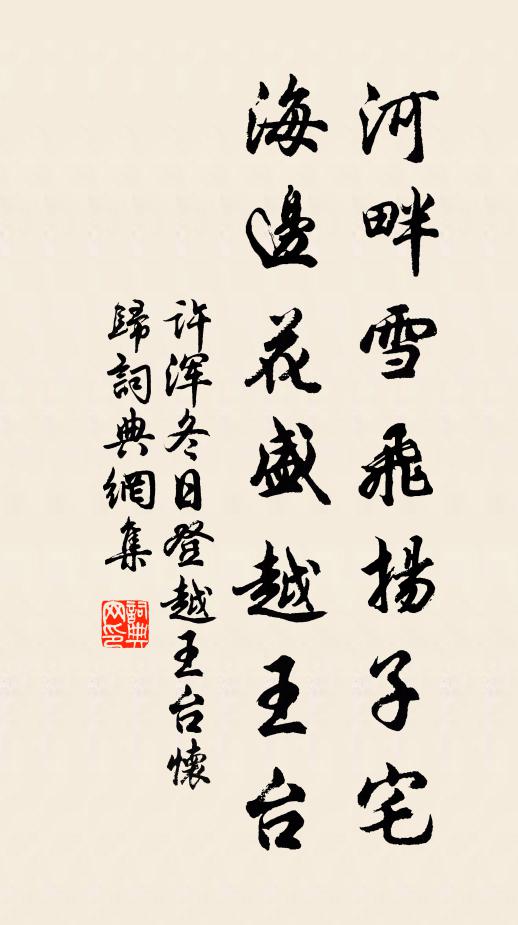 河畔雪飛揚子宅
海邊花盛越王台
许浑冬日登越王台懷
歸詞典網集
詞典网印